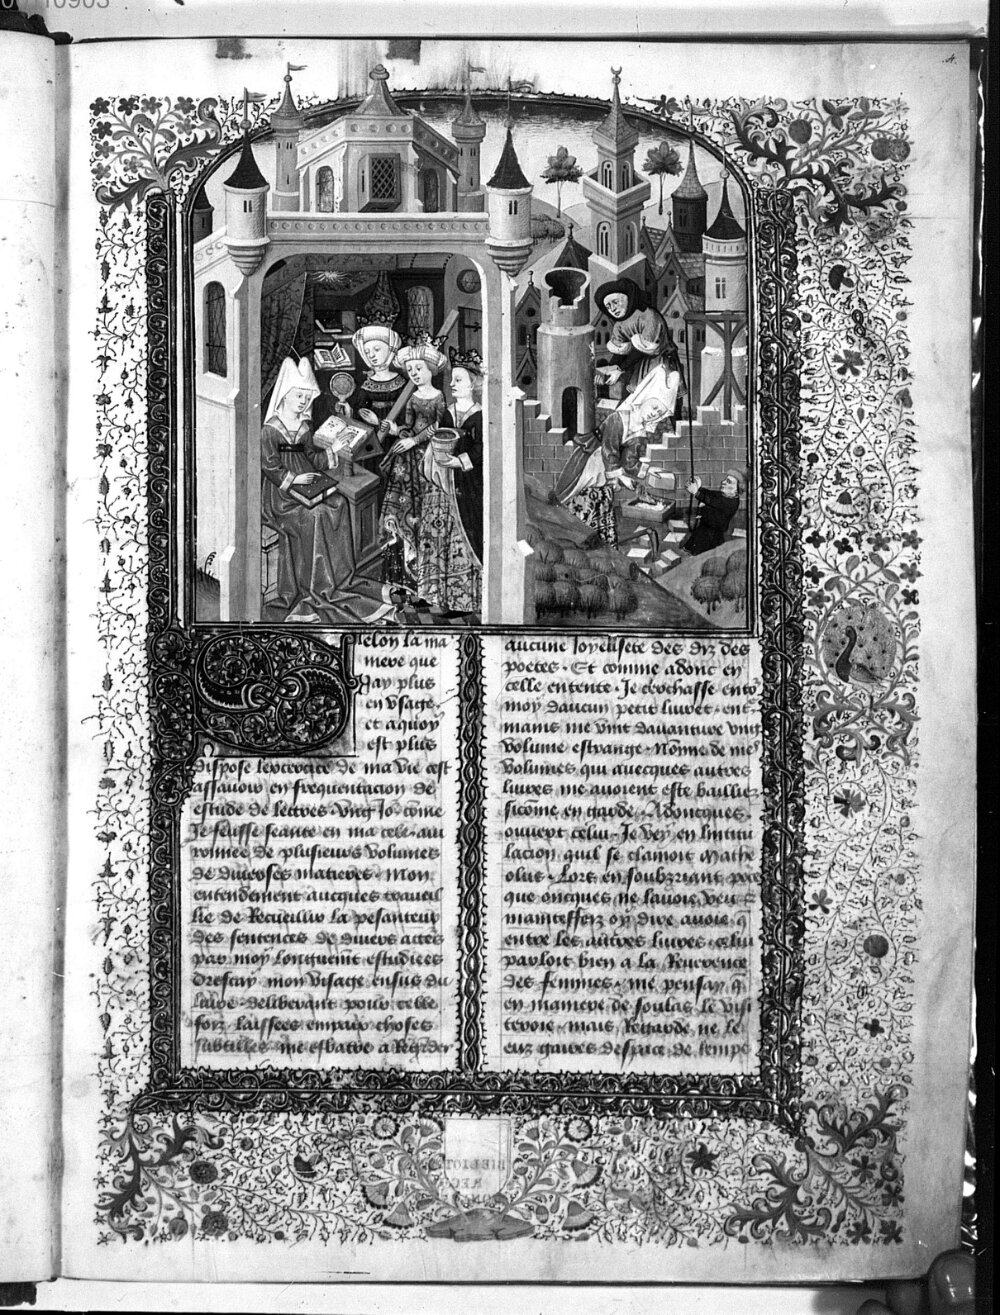 Selon la ma
niere que
Jay plus
en vsage.
et a quoy
est plus
dispose lexercite de ma vie cest
assauoir en frequentacion de
estude de lettres. Vng Jo.r come
Je feusse seante en ma cele. aui
ronnee de plusieurs volumes
de diuerses matieres. Mon
entendement auecques traueil
lie de Recueillir la pesanteur
des sentences de diuers actes
par moy longuemt estudiees
Dressay mon visage ensus du
liure. deliberant pour celle
foiz laissees en paix choses
subtilles. me esbatre a Regarder
aucune Joyeusete des diz des
poetes. Et comme adonc en
celle entente. Je cerchasse ento.r
moy daucun petit liuret. ent
mains me vint dauanture vng
volume estrange. Nome de mes
volumes, qui auecques autres
liures me auoient este baillie
sicome en garde. Adoncques.
ouuert celui. Je vey en lintitu
lacion quil se clamoit Mathe
olus. Lors en soubzriant pour
que oncques ne lauoie veu
maintesfoiz oy dire auoie q
entre les autres liures celui
parloit bien a la Reuerence
des femmes. me pensay q
en maniere de soulas le visi
teroie. mais Regarde ne le
euz gaires despace de temps